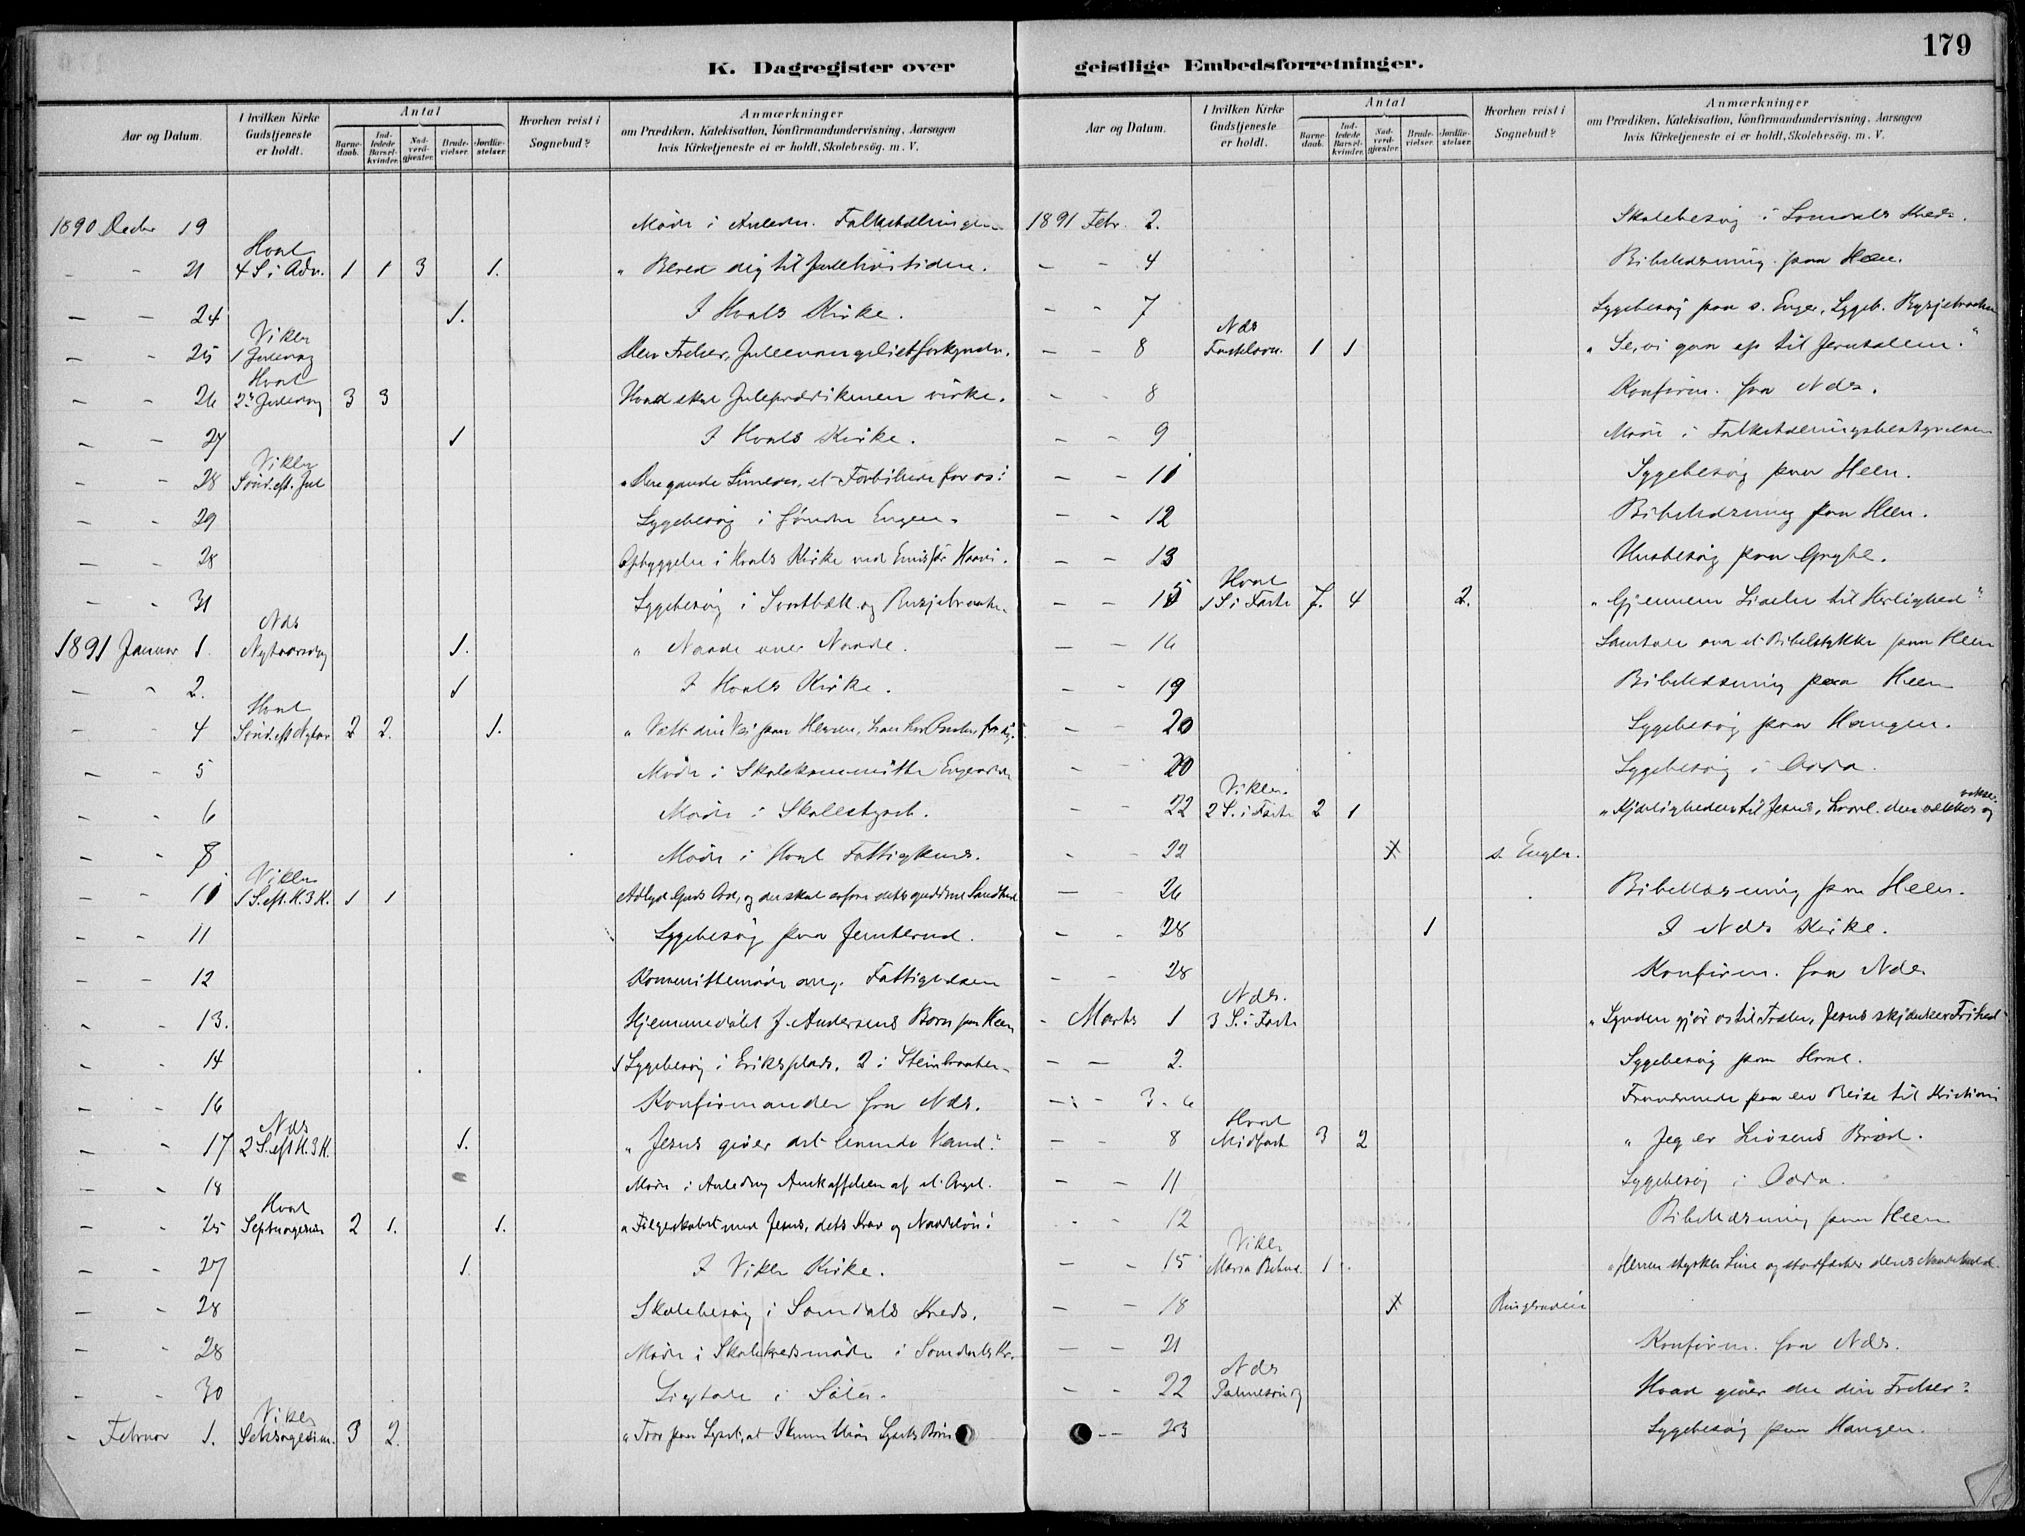 179
K. Dagregister over geistlige Embedsforretninger.
Aar og Datum.
I hvilken Kirke Gudstjeneste er holdt.
Antal
Barnedaab.
Indledede Barselkvinder.
Nadverdgjæster.
Brudevielser.
Jordfæstelser.
Hvorhen reist i Sognebud?
Anmærkninger
om Prædiken, Katekisation, Konfirmandundervisning, Aarsagen
hvis Kirketjeneste ei er holdt, Skolebesög. m. V.
1890 Decbr 19 Møde i Anledn. Folketællingen
- - 21 Hval 4 S. i Adv. 1 1 3 1. "Bered dig til Julehøitiden.
- - 24 1. I Hvals Kirke.
- - 25 Viker 1 Juledag Den Frelser, Juleevangeliet forkynder.
- - 26 Hval 2den Juledag 3 3 Hvad skal Juleprædikenen virke.
- - 27 1 I Hvals Kirke.
- - 28 Viker Sønd. eft. Jul Simeon, et Forbillede for os!
- - 29 Sygebesøg i Søndre Engen.
- - 28 Opbyggelse i Hvals Kirke ved
- - 31 Sygebesøg i Svartbæk og
1891 Januar 1. Nds Nytaarsdag 1. "Naade over Naade.
- - 2. 1 I Hvals Kirke.
- - 4 Hval Sønd. eft Nytaar 2 2. 1. "Vælt din Vei paa Herren, han har for dig.
- - 5 Møde i Skolekommitte
- - 6 Møde i Skolestyret.
- - 8 Møde i Hval Fattigkms.
- - 11 Viker 1 S. eft. H.3K. 1 1 Adlyd Guds Ord, og du skal erfare dets guddom. Sandhed
- - 11 Sygebesøg paa Jernterud.
- - 12 Kommittemøde ang. Fattigvæsen
- - 13. Hjemmedøbt J. Andersens Barn paa Heen
- - 14 1 Sygebesøg i Eriksplads, 2 i Steinbraaten
- - 16 Konfirmander fra Nds.
- - 17 Nds 2 S. eft H.3K. 1. "Jesus giver det levende Vand."
- - 18 Møde i Anledng Anskaffelsen af et Orgel.
- - 25 Hval Septuagesima 2 1. 1. "Følgeskabet med Jesus, dets Krav og Naadeløn!
- - 27 1 I Viker Kirke.
- - 28 Skolebesøg i Somdals Kreds.
- - 28 Møde i Skolekredsmøde i Somdals Kr.
- - 30 Ligtale i
- Februar 1. Viker Seksagesim. 3 2. "Tror paa Lyset, at I kunne blive Lysets Børn
Aar og Datum.
I hvilken Kirke Gudstjeneste er holdt.
Antal
Barnedaab.
Indledede Barselkvinder.
Nadverdgjæster.
Brudevielser.
Jordfæstelser.
Hvorhen reist i Sognebud?
Anmærkninger
om Prædiken, Katekisation, Konfirmandundervisning, Aarsagen
hvis Kirketjeneste ei er holdt, Skolebesög. m. V.
1891 Febr. 2. Skolebesøg i Somdals Kreds.
- - 4 Bibellæsning paa Heen.
- - 7 Sygebesøg paa s. Enger, Sygeb.
- - 8 Nds Fastelavn. 1 1 "Se, vi gaa op til Jerusalem."
- - 8 Konfirm. fra Nds.
- - 9 Møde i Folketællingsbestyrelsen
- - 11 Sygebesøg paa Heen.
- - 12 Bibellæsning paa Heen.
- - 13 Husbesøg paa
- - 15 Hval 1 S. i Faste 7. 4 2. "Gjennem Lidelse til Herlighed"
- - 16 Samtale over et Bibelstykke paa Heen
- - 19 Bibellæsning paa Heen
- - 20 Sygebesøg paa Haugen.
- - 20 Sygebesøg i
- - 22 Viker. 2 S. i Faste 2 1 "Kjærligheden til Jesus, hvorl. den vækkes og vokser.
- - 22 X s. Enger.
- - 26 Bibellæsning paa Heen.
- - 28 1 I Nds Kirke.
- - 28 Konfirm. fra Nds
- Marts 1 Nds. 3 S. i Faste "Synden gjør os til Træle, Jesus skjænker Frihed
- - 2. Sygebesøg paa Hval.
- - 3-6 Fraværende paa en Reise til
- - 8 Hval Midfast 3 2 "Jeg er Livsens Brød.
- - 11 Sygebesøg i
- - 12 Bibellæsning paa Heen
- - 15 Viker Maria Bebud. 1. "Herren styrker Sine og stadfæster deres
- - 18 X
- - 21 Konfirm. fra Nds.
- - 22 Nds Palmesøndg Hvad giver du din Frelser?
- - 23 Sygebesøg paa Haugen.